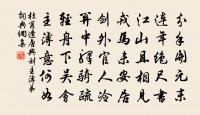 分手開元末
連年絕尺書
江山且相見
戎馬未安居
劍外官人冷
關中驛騎疏
輕舟下吳會
主簿意何如
杜甫逢唐興劉主簿弟
詞典網集